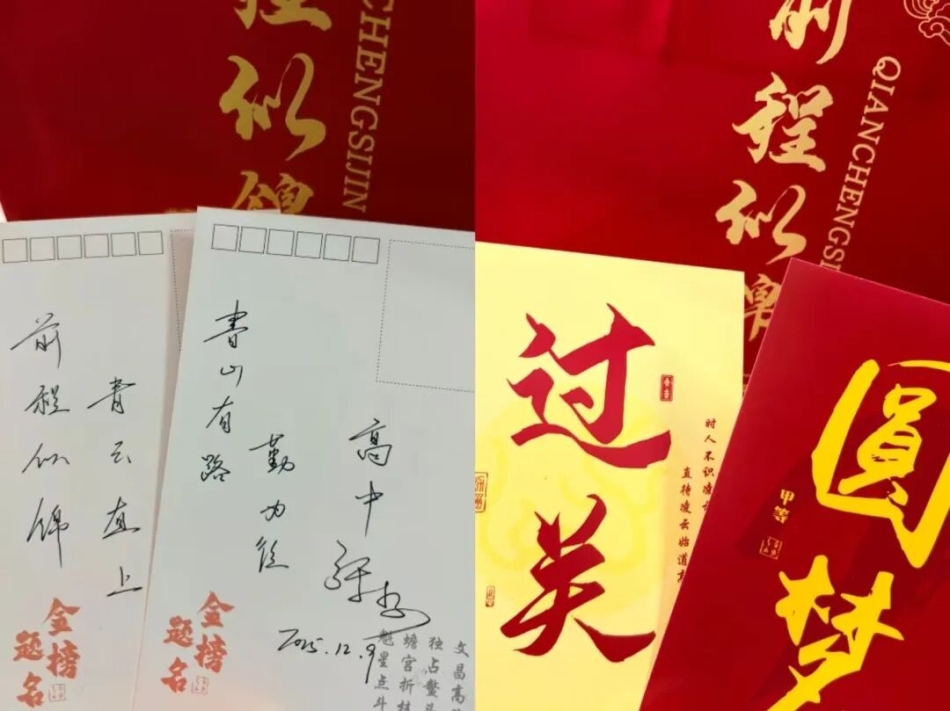 程似锦
CHENGSIJIN
前程似锦
青云直上
金榜
题名
書山有路
勤为径
高中
2025.12.9
金榜
题名
文昌高
独占鳌
蟾宫折桂
魁星点斗
前程似锦
QIANCHENGSI
过关
时人不识凌
直待凌云始道
圆梦
甲等